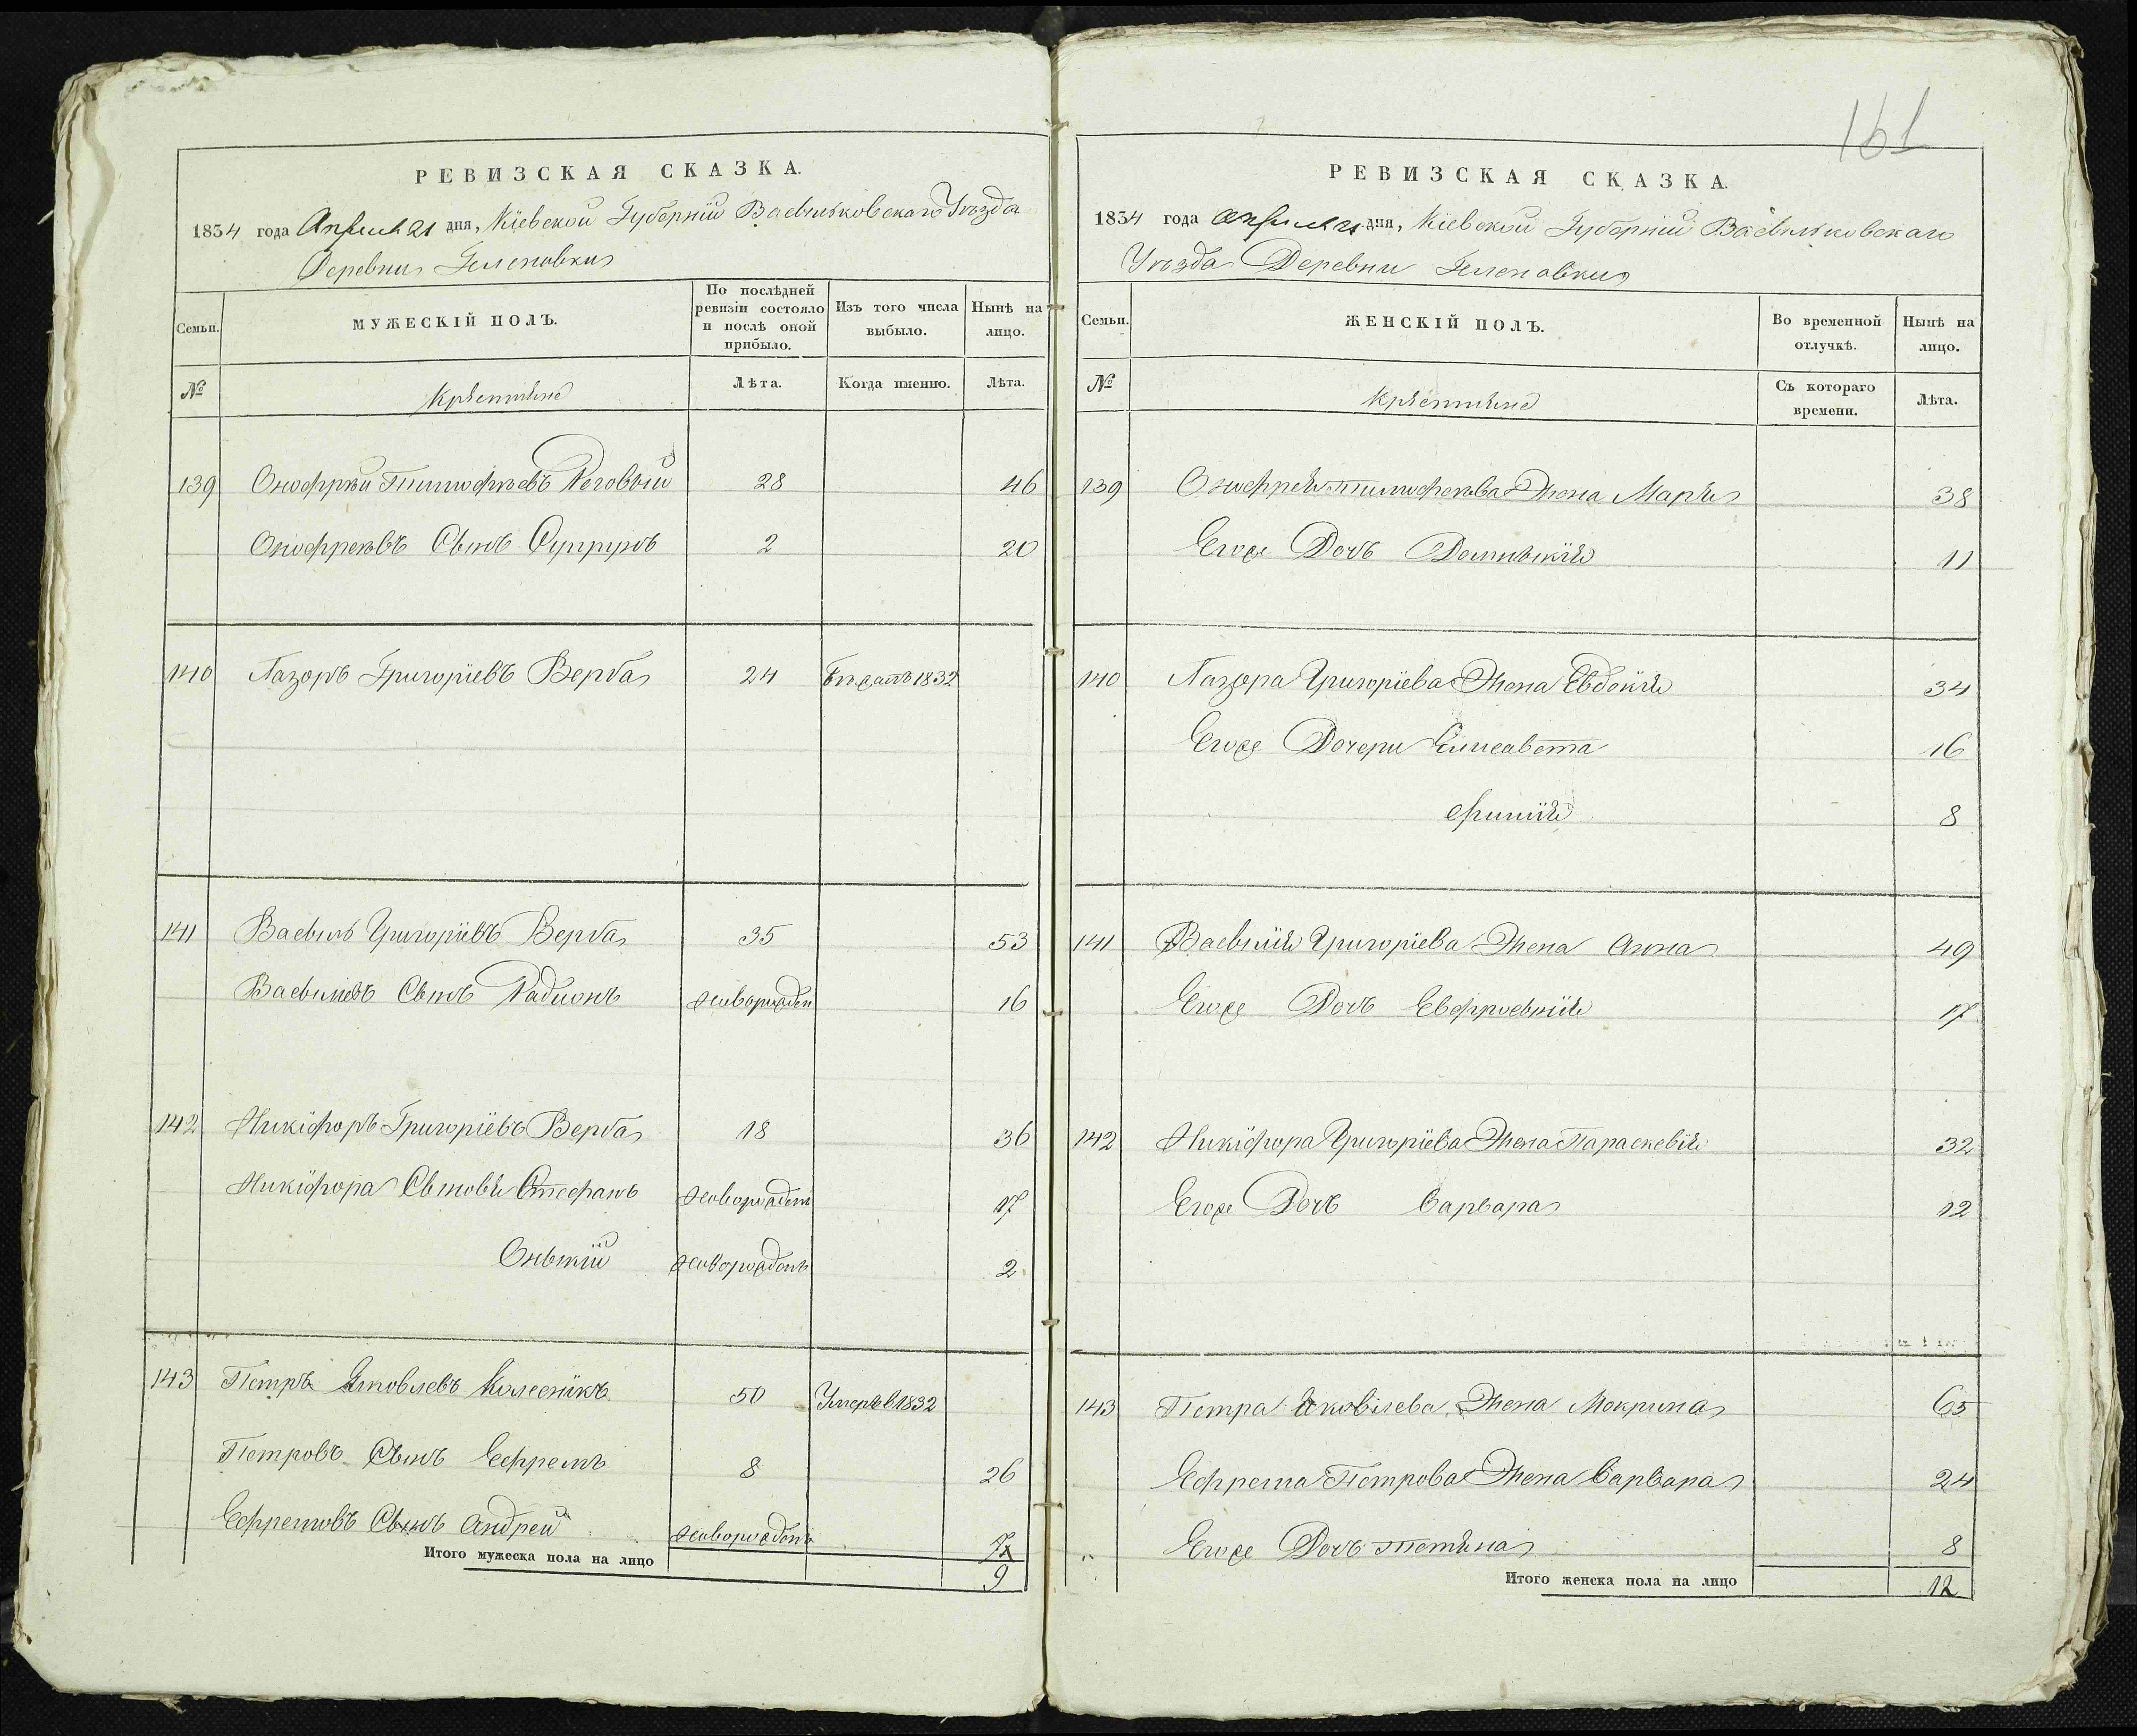 161
РЕВИЗСКАЯ СКАЗКА.
1834 года Апреля 21 дня, Кіевской Губерніи Васильковскаго Уѣзда
Деревни Еленовки
Семьи. МУЖЕСКІЙ ПОЛЪ. По послѣдней ревизіи состояло и послѣ оной прибыло. Изъ того числа выбыло. Нынѣ на лицо.
№ Крѣстяне Лѣта. Когда именно. Лѣта.
139 Онофрѣй Тимофѣевъ Роговый 28 46
Онофреевъ Сынъ 2 20
140 Лазоръ Григоріевъ Верба 24 Бѣжалъ 1832
141 Василь Григоріевъ Верба 35 53
Васильевъ Сынъ Радионъ новорожден 16
142 Никіфоръ Григоріевъ Верба 18 36
Никіфора Сыновя Стефанъ новорожденъ 17
новорожденъ 2
143 Петръ Яковлевъ Колесникъ 50 Умеръ в 1832
Петровъ Сынъ Ефремъ 8 26
Ефремовъ Сынъ Андрей новорожденъ 7
Итого мужеска пола на лицо 9
РЕВИЗСКАЯ СКАЗКА.
1834 года апреля 21 дня, Кіевской Губерніи Васильковскаго
Уѣзда Деревни Еленовки
Семьи. ЖЕНСКІЙ ПОЛЪ. Во временной отлучкѣ. Нынѣ на лицо.
№ Крѣстяне Съ котораго времени. Лѣта.
139 Онофрея Тимофеева Жена Марія 38
Егоже Дочь 11
140 Лазора Григоріева Жена Евдокія 34
Егоже Дочери Елисавета 16
8
141 Василія Григоріева Жена Анна 49
Егоже Дочь Евфросинія 17
142 Никіфора Григоріева Жена Параскевія 32
Егоже Дочь Варвара 12
143 Петра Яковлева Жена Мокрина 65
Ефрема Петрова Жена Варвара 24
Егоже Дочь Тетяна 8
Итого женска пола на лицо 12